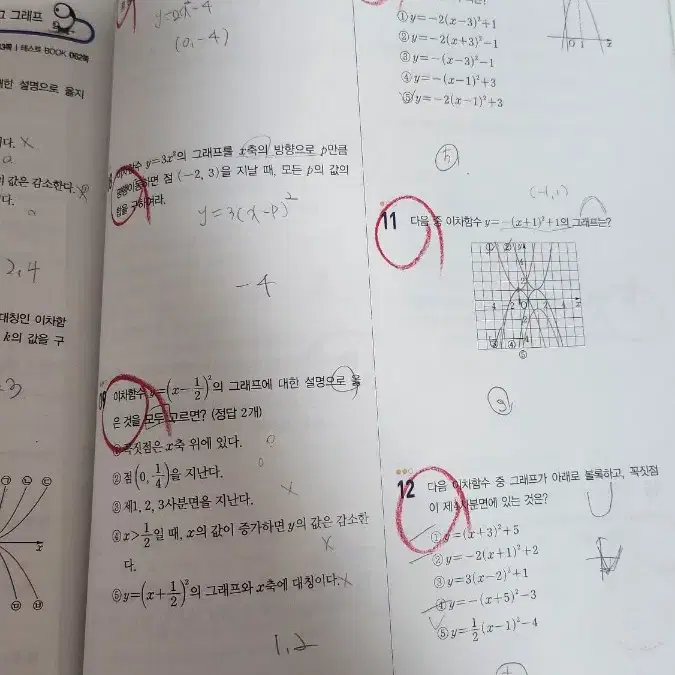 그 그래프
3쪽 | 테스트 BOOK 062쪽
한 설명으로 옳지
다. x
값은 감소한다.
다.
2, 4
대칭인 이차함
k의 값을 구
3
x
y=2x²-4
(0, -4)
이차함수 y=3x²의 그래프를 x축의 방향으로 p만큼
평행이동하면 점 (-2, 3)을 지날 때, 모든 p의 값의
합을 구하여라.
y=3(x-p)²
-4
09 이차함수 y=(x-1/2)²의 그래프에 대한 설명으로 옳
은 것을 모두 고르면? (정답 2개)
① 꼭짓점은 x축 위에 있다. o
② 점(0, 1/4)을 지난다. o
③ 제1, 2, 3사분면을 지난다. x
④ x>1/2일 때, x의 값이 증가하면 y의 값은 감소한
다. x
⑤ y=(x+1/2)²의 그래프와 x축에 대칭이다. x
1, 2
① y=-2(x-3)²+1
② y=-2(x+3)²-1
③ y=-(x-3)²-1
④ y=-(x-1)²+3
⑤ y=-2(x-1)²+3
5
(-1, 1)
11 다음 중 이차함수 y=-(x+1)²+1의 그래프는?
① ② y
4
2
-4 -2 O 2 4 x
-2
③ ④ -4
⑤
3
12 다음 이차함수 중 그래프가 아래로 볼록하고, 꼭짓점
이 제4사분면에 있는 것은?
① y=(x+3)²+5
② y=-2(x+1)²+2
③ y=3(x-2)²+1
④ y=-(x+5)²-3
⑤ y=1/2(x-1)²-4